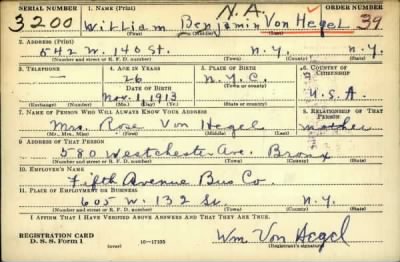 SERIAL NUMBER 1. NAME (Print) N.A. ORDER NUMBER
3200 William Benjamin Von Hegel 39
(First) (Middle) (Last)
2. ADDRESS (Print)
542 W. 140 St. N.Y. N.Y.
(Number and street or R. F. D. number) (Town) (County) (State)
3. TELEPHONE 4. AGE IN YEARS 5. PLACE OF BIRTH 6. COUNTRY OF CITIZENSHIP
— 26 N.Y.C.
DATE OF BIRTH (Town or county)
Nov. 1, 1913 U.S.A.
(Exchange) (Number) (Mo.) (Day) (Yr.) (State or country)
7. NAME OF PERSON WHO WILL ALWAYS KNOW YOUR ADDRESS 8. RELATIONSHIP OF THAT PERSON
Mrs. Rose Von Hegel mother
(Mr., Mrs., Miss) (First) (Middle) (Last)
9. ADDRESS OF THAT PERSON
580 Westchester Ave. Bronx
(Number and street or R. F. D. number) (Town) (County) (State)
10. EMPLOYER'S NAME
Fifth Avenue Bus Co.
11. PLACE OF EMPLOYMENT OR BUSINESS
605 W. 132 St. N.Y.
(Number and street or R. F. D. number) (Town) (County) (State)
I AFFIRM THAT I HAVE VERIFIED ABOVE ANSWERS AND THAT THEY ARE TRUE.
REGISTRATION CARD
D. S. S. Form 1 (over) 16—17105 Wm. Von Hegel
(Registrant's signature)